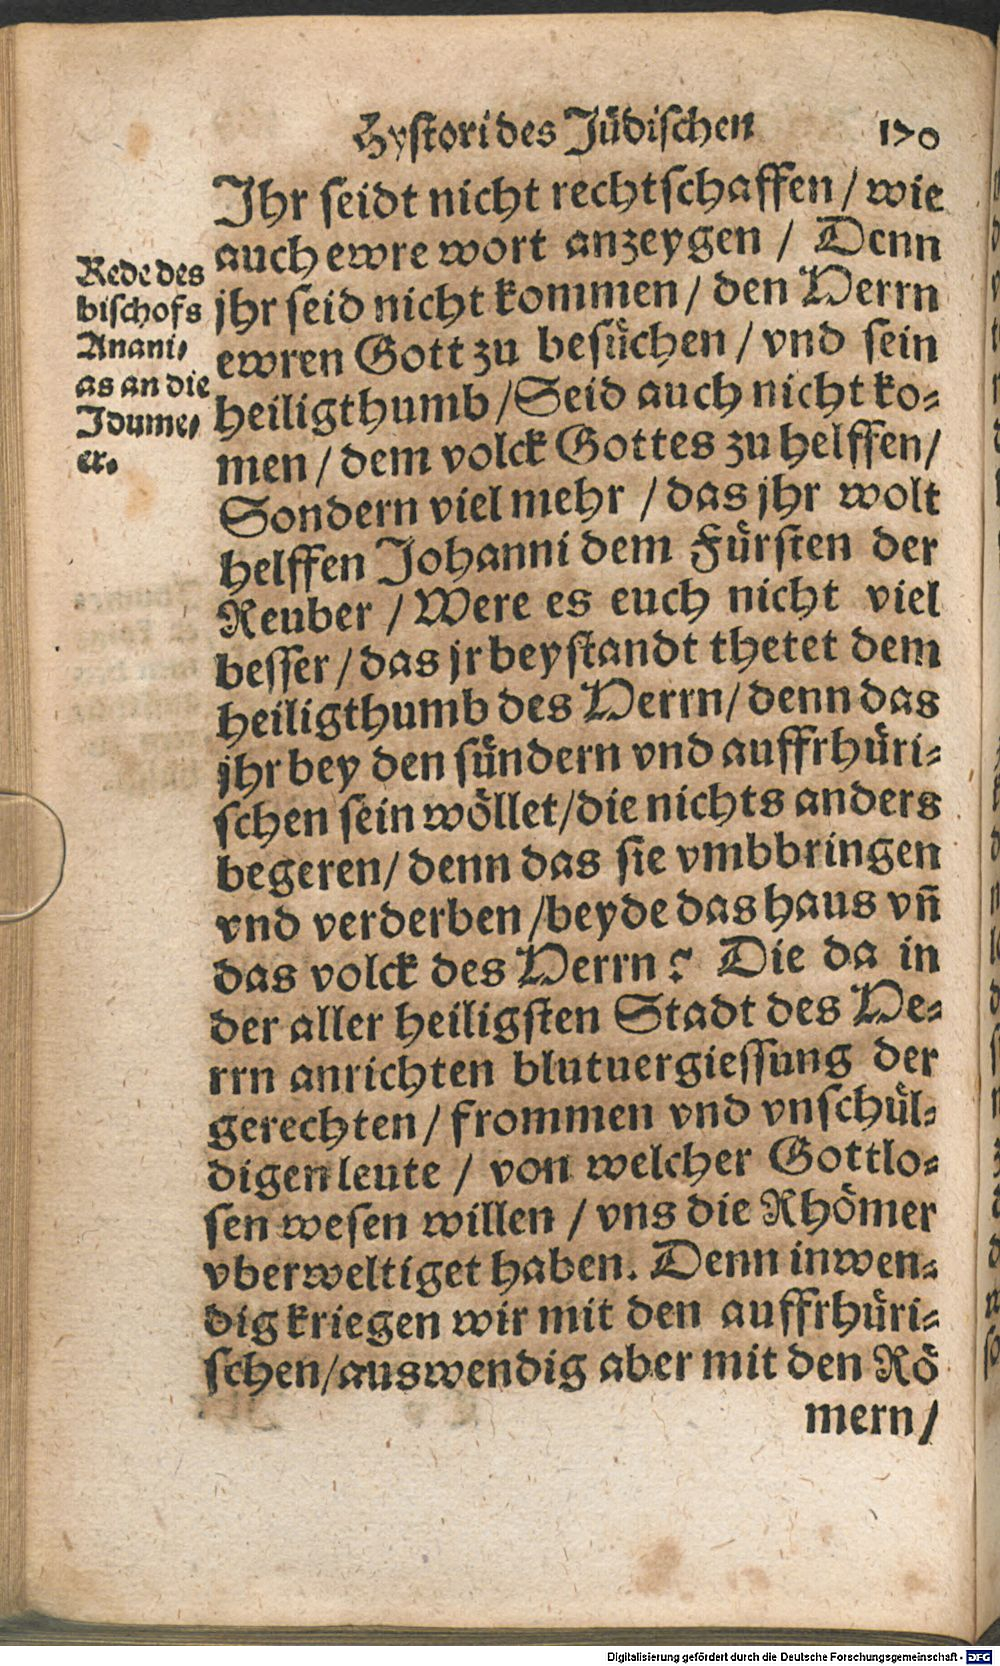 Hystori des Jüdischen 170
Jhr seidt nicht rechtschaffen / wie
auch ewre wort anzeygen / Denn
jhr seid nicht kommen / den Herrn
ewren Gott zu besüchen / vnd sein
heiligthumb / Seid auch nicht ko-
men / dem volck Gottes zu helffen /
Sondern viel mehr / das jhr wolt
helffen Johanni dem Fürsten der
Reuber / Were es euch nicht viel
besser / das jr beystandt thetet dem
heiligthumb des Herrn / denn das
jhr bey den sündern vnd auffrhüri-
schen sein wöllet / die nichts anders
begeren / denn das sie vmbbringen
vnd verderben / beyde das haus vñ
das volck des Herrn? Die da in
der aller heiligsten Stadt des He-
rrn anrichten blutuergiessung der
gerechten / frommen vnd vnschül-
digen leute / von welcher Gottlo-
sen wesen willen / vns die Rhömer
vberweltiget haben. Denn inwen-
dig kriegen wir mit den auffrhüri-
schen / auswendig aber mit den Rö
mern /
Rede des
bischofs
Anani-
as an die
Idume-
er.
Digitalisierung gefördert durch die Deutsche Forschungsgemeinschaft - DFG